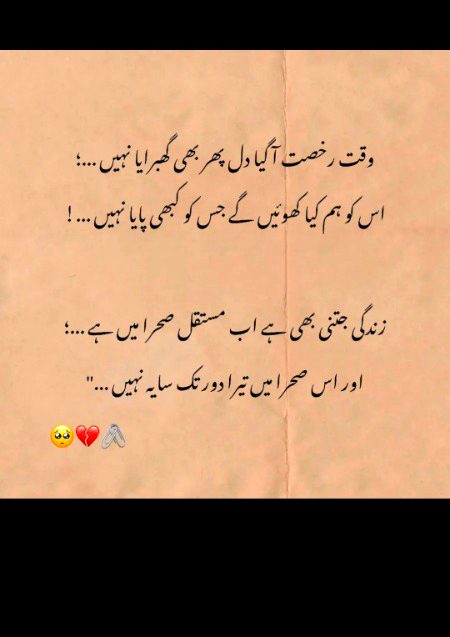 وقت رخصت آگیا دل پھر بھی گھبرایا نہیں ...؛
اس کو ہم کیا کھوئیں گے جس کو کبھی پایا نہیں ... !
زندگی جتنی بھی ہے اب مستقل صحرا میں ہے ...؛
اور اس صحرا میں تیرا دور تک سایہ نہیں ..."
🥺💔🖇️